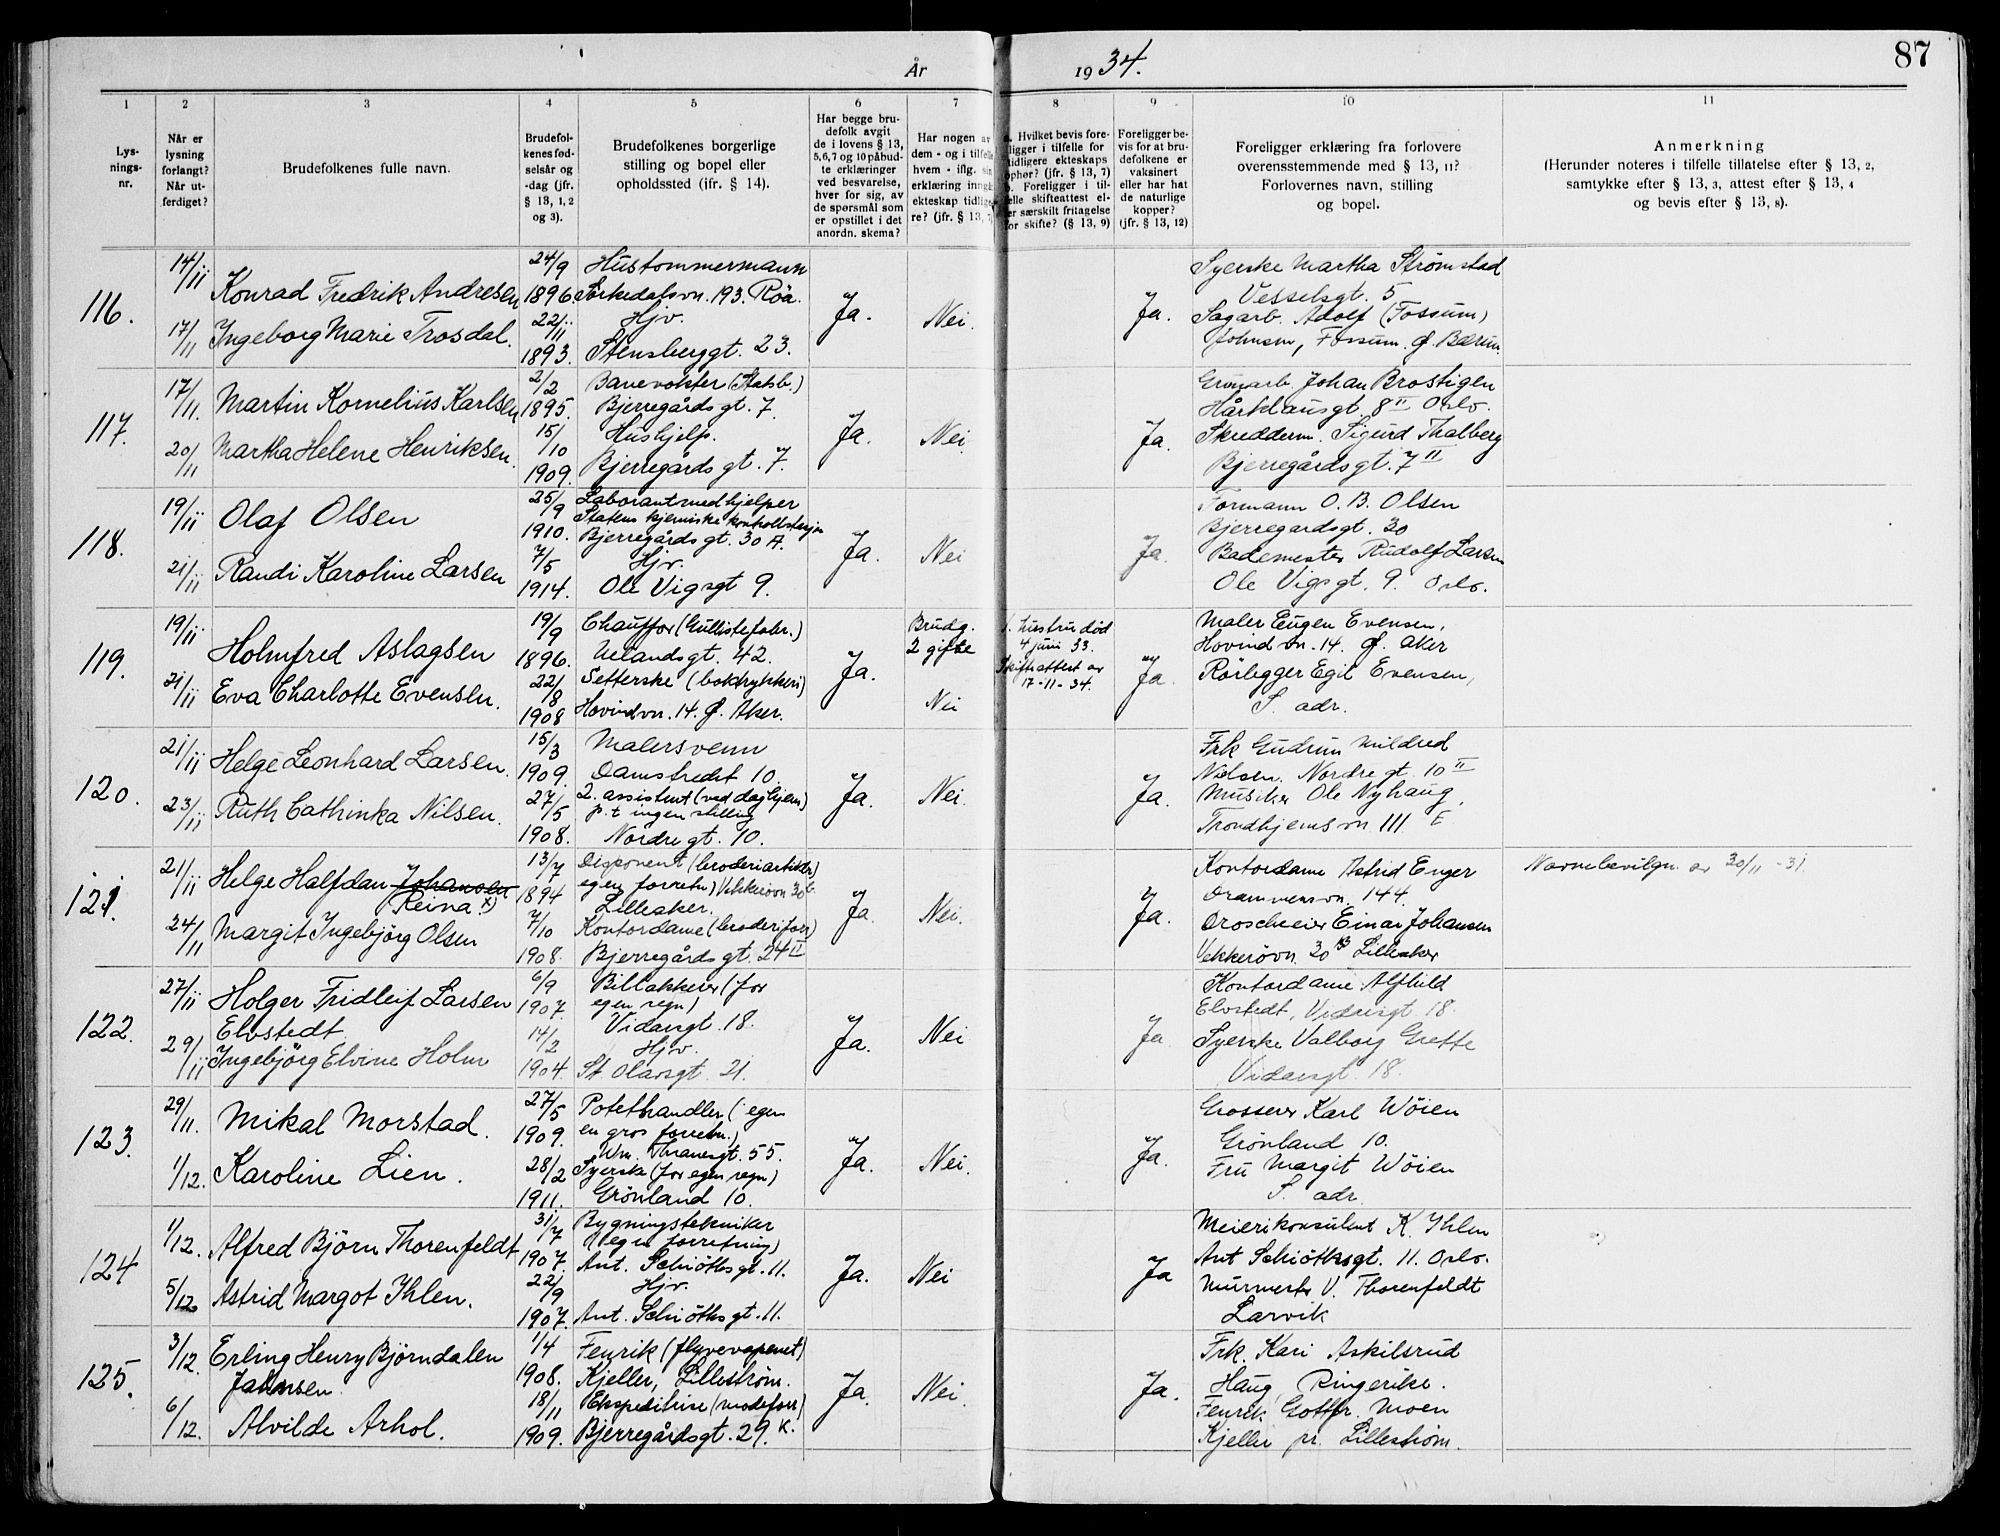 År 1934.
87
1
2
3
4
5
6
7
8
9
10
11
Lys-
nings-
nr.
Når er
lysning
forlangt?
Når ut-
ferdiget?
Brudefolkenes fulle navn.
Brudefol-
kenes fød-
selsår og
-dag (jfr.
§ 13, 1, 2
og 3).
Brudefolkenes borgerlige
stilling og bopel eller
opholdssted (ifr. § 14).
Har begge bru-
defolk avgit
de i lovens § 13,
5, 6, 7 og 10 påbud-
te erklæringer
ved besvarelse,
hver for sig, av
de spørsmål som
er opstillet i det
anordn. skema?
Har nogen av
dem - og i tilfelle
hvem - iflg. sin
erklæring inngå
ekteskap tidlige-
re? (jfr. § 13, 7)
a. Hvilket bevis fore-
ligger i tilfelle for
tidligere ekteskaps
ophør? (jfr. § 13, 7)
b. Foreligger i til-
felle skifteattest el-
ler særskilt fritagelse
for skifte? (§ 13, 9)
Foreligger be-
vis for at bru-
defolkene er
vaksinert
eller har hat
de naturlige
kopper?
(jfr. § 13, 12)
Foreligger erklæring fra forlovere
overensstemmende med § 13, 11?
Forlovernes navn, stilling
og bopel.
Anmerkning
(Herunder noteres i tilfelle tillatelse efter § 13, 2,
samtykke efter § 13, 3, attest efter § 13, 4
og bevis efter § 13, 8).
116.
14/11
17/11
Konrad Fredrik Andresen
Ingeborg Marie Trosdal.
24/9
1896.
22/11
1893.
Hustommermann
Sørkedalsvn. 193. Röa.
Hjv.
Stensberggt. 23.
Ja.
Nei.
Ja.
Syerske Martha Strömstad
Vesselsgt. 5
Sagarb. Adolf (Fossum)
Johnsen, Fossum. Ø. Bærum.
117.
17/11.
20/11
Martin Kornelius Karlsen
Martha Helene Henriksen.
2/2
1895.
15/10
1909.
Banevokter (Statsb.)
Bjerregårds gt. 7.
Hushjelp.
Bjerregårds gt. 7.
Ja.
Nei.
Ja.
Johan Brostigen
8 II Oslo.
Skredderm. Sigurd Thalberg
Bjerregårdsgt. 7 II
118.
19/11
21/11
Olaf Olsen
Randi Karoline Larsen
25/9
1910.
7/5
1914.
Laborantmedhjelper
Statens kjemiske kontrollstasjon
Bjerregårds gt. 30 A.
Hjv.
Ole Vigsgt 9.
Ja.
Nei
Ja.
Formann O. B. Olsen
Bjerregardsgt. 30
Bademester Rudolf Larsen
Ole Vigsgt. 9. Oslo.
119.
19/11
21/11
Holmfred Aslagsen
Eva Charlotte Evensen.
19/9
1896.
22/8
1908
Chauffør (Gullistefabr.)
Uelandsgt. 42.
Setterske (boktrykkeri)
Hovindvn. 14. Ø. Aker.
Ja.
Brudg.
2 gifte
Nei
1. hustru död
4 juni 33.
Skifteattest av
17-11-34.
Ja.
Maler Eugen Evensen,
Hovind vn. 14. Ø. Aker
Rörlegger Egil Evensen,
S. adr.
120.
21/11
23/11
Helge Leonhard Larsen.
Ruth Cathinka Nilsen.
15/3
1909.
27/5
1908.
Malersvenn
Damstredet 10.
2. assistent (ved daghjem)
p. t ingen stilling
Nordre gt. 10.
Ja.
Nei.
Ja.
Frk Gudrun Mildred
Nielsen. Nordre gt. 10 II
Musiker Ole Nyhaug,
Trondhjems vn 111. E
121.
21/11
24/11
Helge Halfdan Johansen
Reina x)
Margit Ingebjörg Olsen
13/7
1894
7/10
1908.
Disponent (broderiartikler)
egen forretn) Vekkerövn 30 b.
Lilleaker.
Kontordame (broderiforr)
Bjerregårdsgt. 24 II
Ja.
Nei.
Ja.
Kontordame Astrid Enger
Drammensvn. 144.
Droscheeier Einar Johansen
Vekkerövn. 30 B Lilleaker
Navnebevilgn. av 30/11 - 31.
122.
27/11
29/11
Holger Fridleif Larsen
Elvstedt.
Ingebjörg Elvine Holm
6/9
1907.
14/2
1904.
Billakkerer (for
egen regn)
Vidarsgt. 18.
Hjv.
St Olavsgt. 21.
Ja.
Nei
Ja
Kontordame Alfhild
Elvstedt, Vidarsgt 18.
Syerske Valborg Grette
Vidarsgt. 18.
123.
29/11.
1/12.
Mikal Morstad.
Karoline Lien.
27/5
1909.
28/2
1911.
Potethandler (egen
en gros forretn.)
Wm. Thranesgt. 55.
Syerske (for egen regn)
Grönland 10.
Ja.
Nei.
Ja.
Grosserer Karl Wöien
Grönland 10.
Fru Margit Wöien
S. adr.
124
1/12.
5/12
Alfred Björn Thorenfeldt
Astrid Margot Ihlen.
31/7
1907.
22/9
1907.
Bygningstekniker
(egen forretning)
Ant. Schiöthsgt. 11.
Hjv.
Ant. Schiöthsgt. 11.
Ja.
Nei
Ja
Meierikonsulent K. Ihlen
Ant Schiöthsgt. 11. Oslo.
Murmester V. Thorenfeldt
Larvik
125.
3/12.
6/12.
Erling Henry Björndalen
Jahnsen.
Alvilde Arhol.
1/4
1908.
18/11
1909.
Fenrik (flyvevapenet)
Kjeller, Lilleström.
Ekspeditrise (moteforr)
Bjerregårdsgt. 29. K.
Ja
Nei.
Ja.
Frk. Kari Askilsrud
Haug, Ringerike.
Fenrik Gottfr. Moen
Kjeller pr. Lilleström.